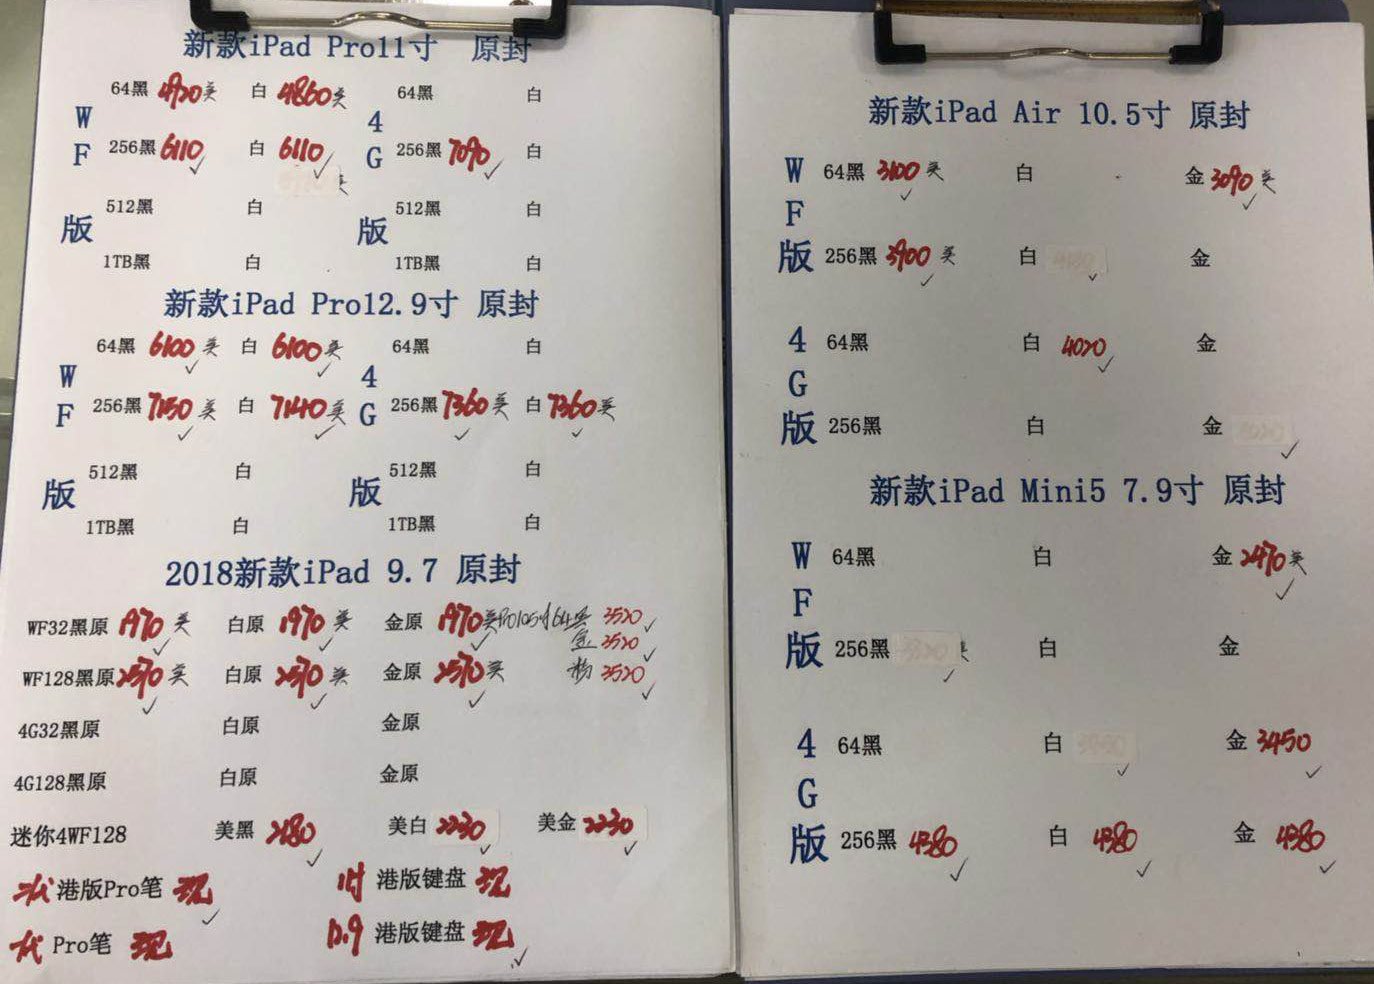 新款iPad Pro11寸 原封
WF版
64黑 4920美 白 4860美
256黑 6110 白 6110
512黑 白
1TB黑 白
4G版
64黑 白
256黑 7090 白
512黑 白
1TB黑 白
新款iPad Pro12.9寸 原封
WF版
64黑 6100美 白 6100美
256黑 7150美 白 7140美
512黑 白
1TB黑 白
4G版
64黑 白
256黑 7360美 白 7360美
512黑 白
1TB黑 白
2018新款iPad 9.7 原封
WF32黑原 1970美 白原 1970美 金原 1970美 Pro10.5寸64 3520
金 3520
WF128黑原 2570美 白原 2570美 金原 2570美 粉 3520
4G32黑原 白原 金原
4G128黑原 白原 金原
迷你4WF128 美黑 2180 美白 2230 美金 2230
二代 港版Pro笔 现 11寸 港版键盘 现
一代 Pro笔 现 12.9 港版键盘 现
新款iPad Air 10.5寸 原封
WF版
64黑 3100美 白 金 3090美
256黑 3900美 白 金
4G版
64黑 白 4020 金
256黑 白 金
新款iPad Mini5 7.9寸 原封
WF版
64黑 白 金 2470美
256黑 白 金
4G版
64黑 白 金 3450
256黑 4380 白 4380 金 4380